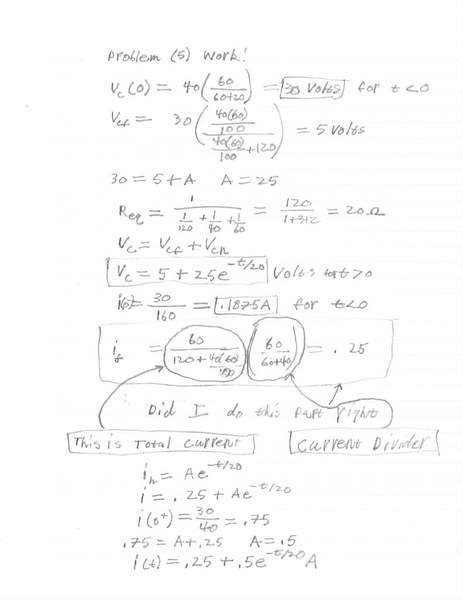 Problem (5) Work!
Vc(0) = 40(60/(60+20)) = 30 Volts for t<0
Vcf = 30((40(60)/100)/(40(60)/100 + 120)) = 5 Volts
30 = 5 + A   A = 25
Req = 1/(1/120 + 1/40 + 1/60) = 120/(1+3+2) = 20 Ω
Vc = Vcf + Vcn
Vc = 5 + 25e^(-t/20) Volts for t>0
i(0) = 30/160 = .1875A for t<0
if = 60/(120 + 40(60)/100) (60/(60+40)) = .25
Did I do this part right
This is Total current   Current Divider
in = Ae^(-t/20)
i = .25 + Ae^(-t/20)
i(0+) = 30/40 = .75
.75 = A+.25   A = .5
i(t) = .25 + .5e^(-t/20) A